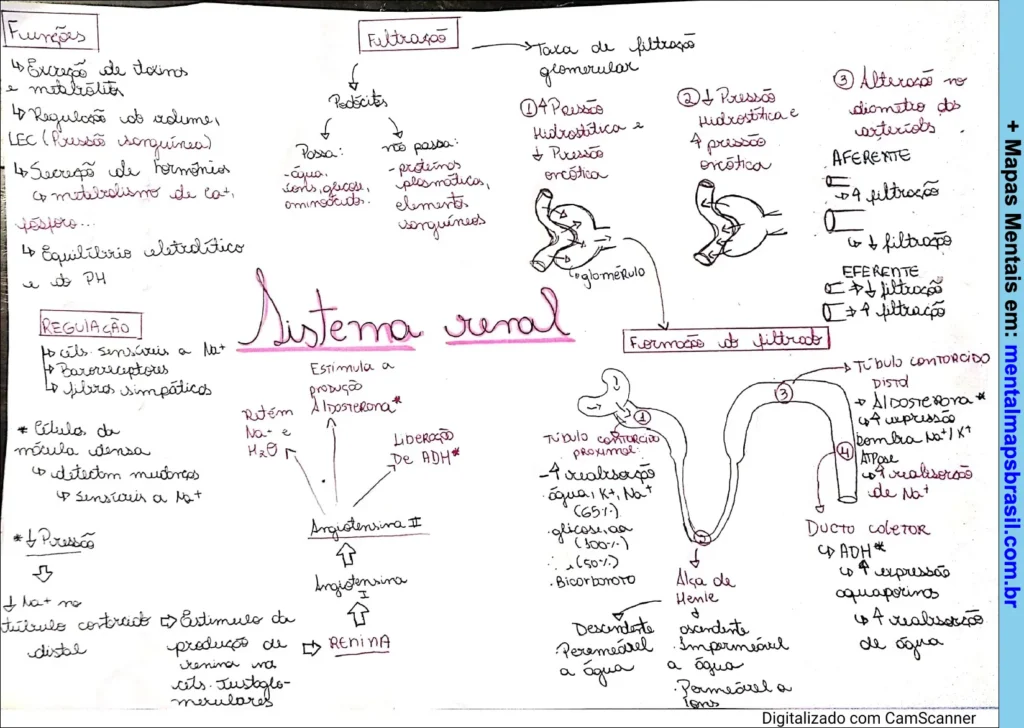 Funções
↳ Excreção de toxinas
e metabólitos
↳ Regulação do volume,
LEC (Pressão sanguínea)
↳ Secreção de Hormônios
↳ metabolismo de Ca+,
fósforo...
↳ Equilíbrio eletrolítico
e do PH
Filtração
→ Taxa de filtração
glomerular
Podócitos
Passa:
-água,
íons, glicose,
aminoácidos.
não passa:
-proteínas
plasmáticas,
elementos
sanguíneos
① ↑ Pressão
Hidrostática e
↓ Pressão
oncótica
↳ glomérulo
② ↓ Pressão
Hidrostática e
↑ pressão
oncótica
③ Alteração no
diametro das
arteríolas
AFERENTE
→ ↑ filtração
↳ ↓ filtração
EFERENTE
→ ↓ filtração
→ ↑ filtração
Sistema renal
REGULAÇÃO
↳ céls. sensíveis a Na+
↳ Barorreceptores
↳ fibras simpáticas
* Células da
mácula densa
↳ detectam mudanças
↳ sensíveis a Na+
* ↓ Pressão
↓ Na+ no
túbulo contorcido
distal
⇨ Estimulo da
produção de
renina na
céls. Justaglo-
merulares
⇨ RENINA
Angiotensina
I
Angiotensina II
Retém
Na+ e
H2O
Estimula a
produção
Aldosterona*
LIBERAÇÃO
De ADH*
Formação do filtrado
①
TÚBULO CONTORCIDO
PROXIMAL:
-↑ reabsorção
água, K+, Na+
(65%)
.glicose, aa
(100%)
(50%)
.Bicarbonato
②
Alça de
Henle
Descendente
Peremeável
a água
ascendente
.Impermeável
a água
.Permeável a
íons
③
→ TÚBULO CONTORCIDO
DISTAL
↳ Aldosterona *
↳ ↑ expressão
bomba Na+/K+
ATPase
↳ ↑ reabsorção
de Na+
④
DUCTO COLETOR
↳ ADH*
↳ ↑ expressão
aquaporinas
↳ ↑ reabsorção
de água
+ Mapas Mentais em: mentalmapsbrasil.com.br
Digitalizado com CamScanner